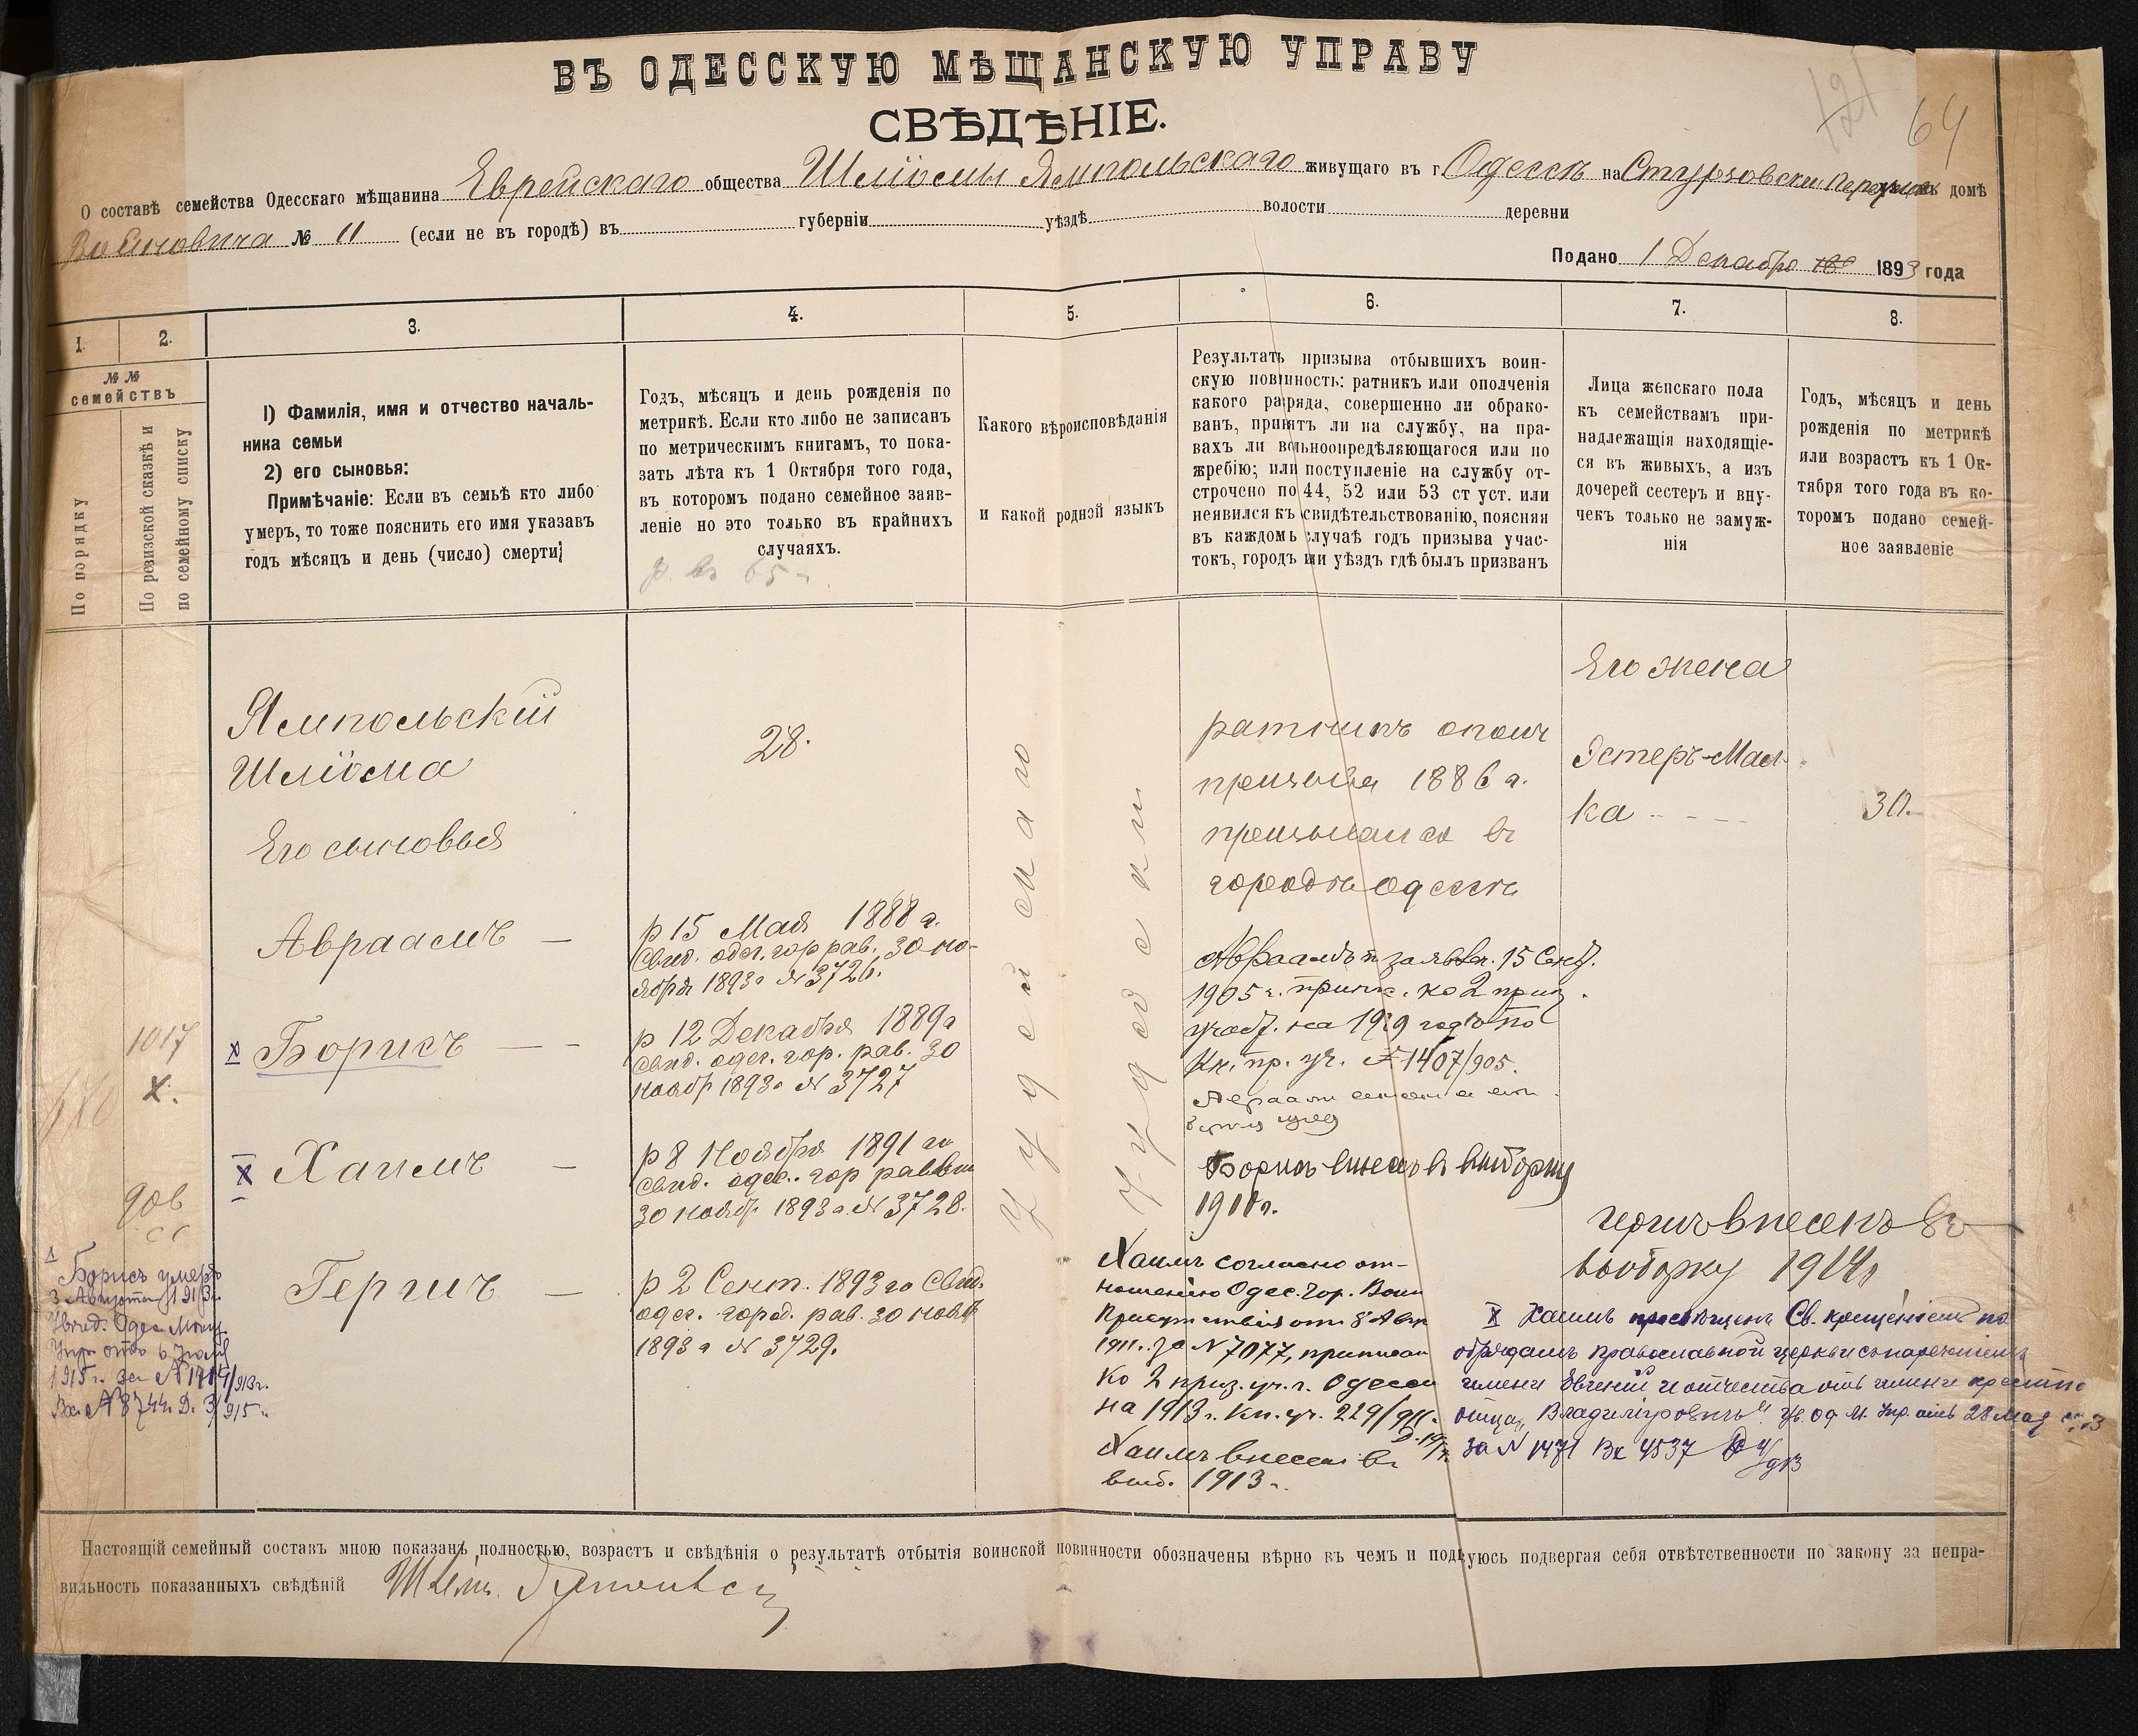 ВЪ ОДЕССКУЮ МѢЩАНСКУЮ УПРАВУ
СВѢДѢНІЕ.
64
О составѣ семейства Одесскаго мѣщанина Еврейскаго общества Шліомы Ямпольскаго живущаго въ г. Одессѣ на домѣ
№ 11 (если не въ городѣ) въ губерніи уѣздѣ волости деревни
Подано 1 Декабря 1893 года
1.
2.
3.
4.
5.
6.
7.
8.
№№
семействъ
По порядку
По ревизской сказкѣ и
по семейному списку
1) Фамилія, имя и отчество началь-
ника семьи
2) его сыновья:
Примѣчаніе: Если въ семьѣ кто либо
умеръ, то тоже пояснить его имя указавъ
годъ мѣсяцъ и день (число) смерти;
Годъ, мѣсяцъ и день рожденія по
метрикѣ. Если кто либо не записанъ
по метрическимъ книгамъ, то пока-
зать лѣта къ 1 Октября того года,
въ которомъ подано семейное заяв-
леніе но это только въ крайнихъ
случаяхъ.
Какого вѣроисповѣданія
и какой родной языкъ
Результатъ призыва отбывшихъ воин-
скую повинность: ратникъ или ополченія
какого разряда, совершенно ли обрако-
ванъ, принятъ ли на службу, на пра-
вахъ ли вольноопредѣляющагося или по
жребію; или поступленіе на службу от-
строчено по 44, 52 или 53 ст уст. или
неявился къ свидѣтельствованію, поясняя
въ каждомъ случаѣ годъ призыва учас-
токъ, городъ или уѣздъ гдѣ былъ призванъ
Лица женскаго пола
къ семействамъ при-
надлежащія находящіе-
ся въ живыхъ, а изъ
дочерей сестеръ и вну-
чекъ только не замуж-
нія
Годъ, мѣсяцъ и день
рожденія по метрикѣ
или возрастъ къ 1 Ок-
тября того года въ ко-
торомъ подано семей-
ное заявленіе
Ямпольскій
Шліома
28.
Іудейскаго
Іудейскій
ратникъ ополч
призыва 1886 г.
призывался въ
городѣ Одессѣ
Его жена
Эстеръ-Мал-
ка
30.
Его сыновья
Авраамъ —
р 15 Мая 1888 г.
Свид. одес. гор рав. 30 но-
ября 1893 г № 3726.
Авраамъ п заявл. 15 Сент.
1905 г. припис. ко 2 приз.
участ. на 1909 годъ по
Кн. пр. уч. № 1407/905.
1017
х.
х Борисъ — —
р 12 Декабря 1889 г
свид. одес. гор. рав. 30
ноябр 1893 г № 3727
Борисъ внесенъ въ выборку
1910 г.
906
х Хаимъ —
р 8 Ноября 1891 го
свид. одес. гор раввин
30 ноябр 1893 г. № 3728.
Гершъ —
р 2 Сент. 1893 го Свид.
одес. город. рав. 30 нояб
1893 г № 3729.
Гершъ внесенъ въ
выборку 1914 г
Хаимъ согласно от-
ношенію Одес. Гор. Воин
Присутствія отъ 8 Авг
1911 г. за № 7077, приписан
ко 2 приз. уч. г. Одессы
на 1913 г. Кн. уч. 229/911 г.
Хаимъ внесен въ
выб. 1913 г.
х Хаимъ просвѣщенъ Св. крещеніемъ по
обрядамъ православной церкви съ нареченіемъ
имени Евгеній и отчества отъ имени крестно
отца „Владиміровичъ". Ув. Од М. Упр. отъ 28 Мая
за № 1471 Вх 4537
Борисъ умеръ
3 Августа 1913 г.
Увед. Одес Мѣщ.
Упр отъ 6 Іюля
1915 г. за №
Вх. № 8744 Д. 3/915 г.
Настоящій семейный составъ мною показанъ полностью, возрастъ и свѣдѣнія о результатѣ отбытія воинской повинности обозначены вѣрно въ чемъ и подпуюсь подвергая себя отвѣтственности по закону за непра-
вильность показанныхъ свѣдѣній